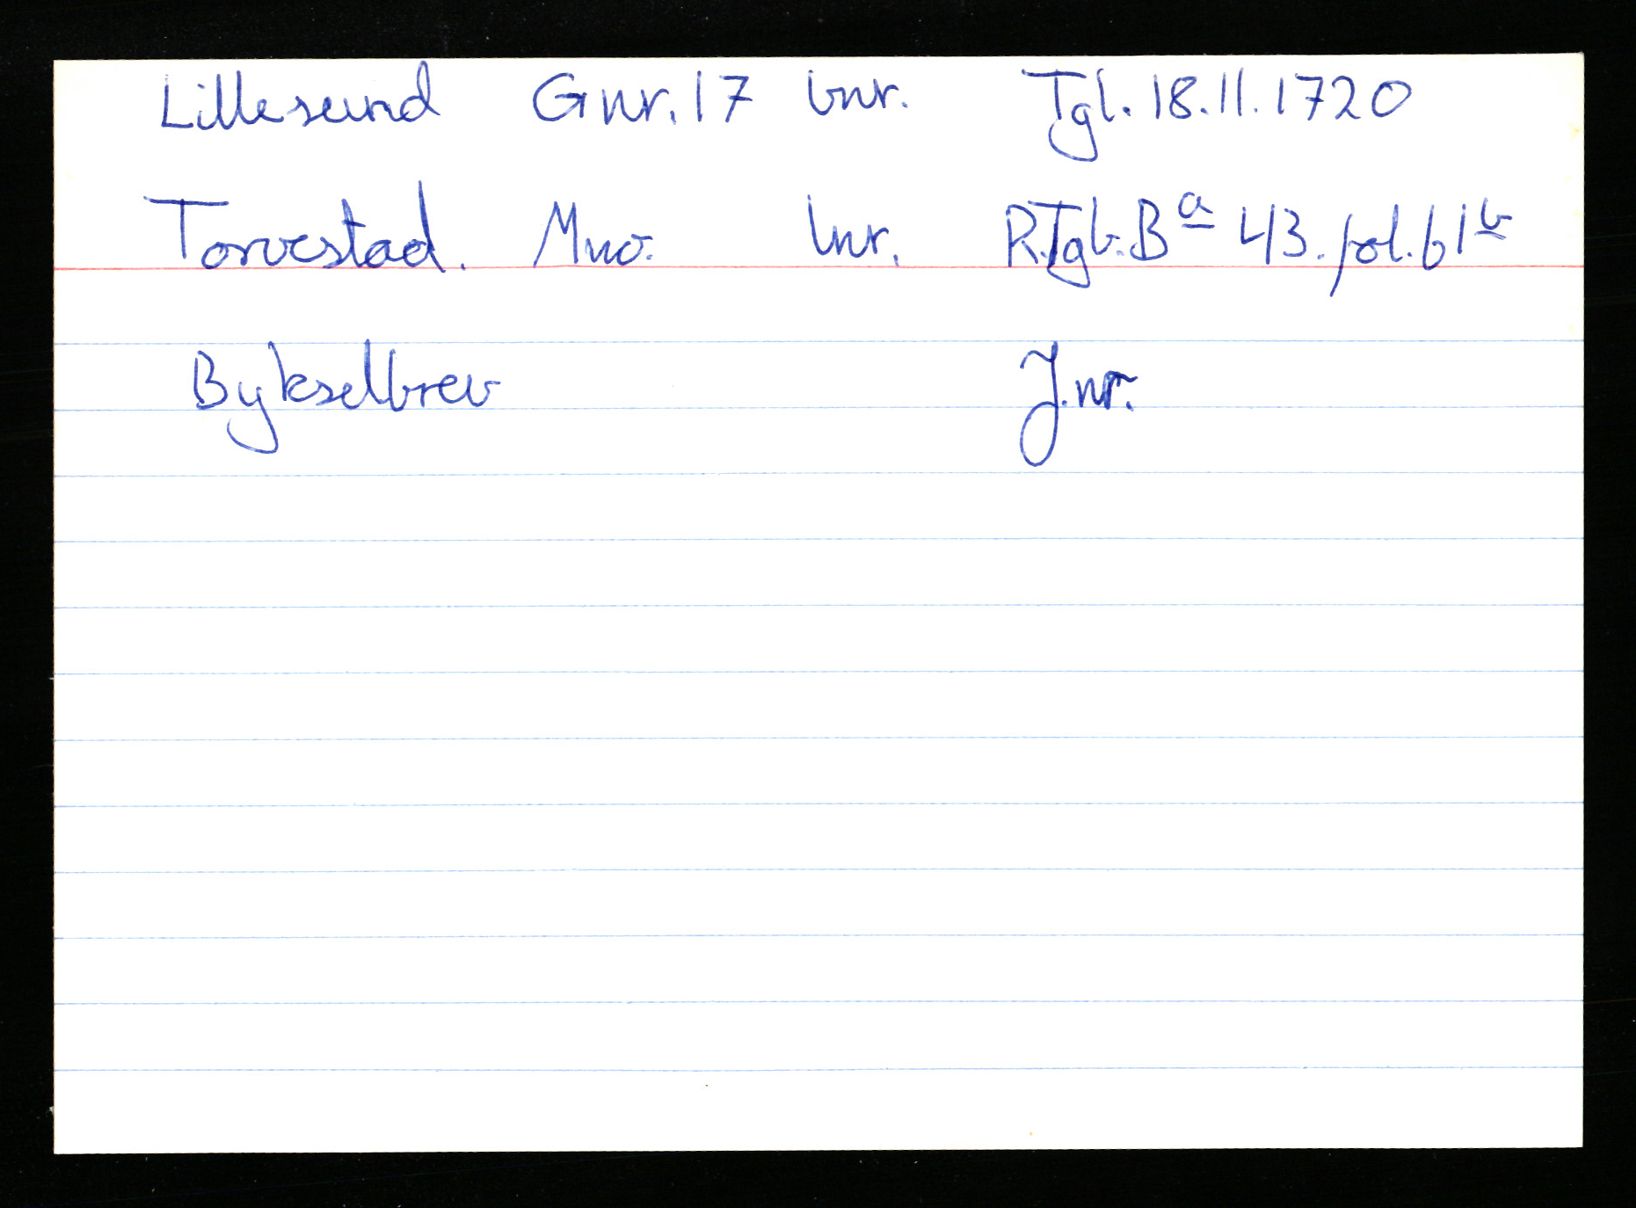 Lillesund Gnr. 17 bnr. Tgl. 18.11.1720
Torvestad. Mno. lnr. R.Tgb. Bª 43. fol. 61ᵇ
Bykselbrev J.nr.